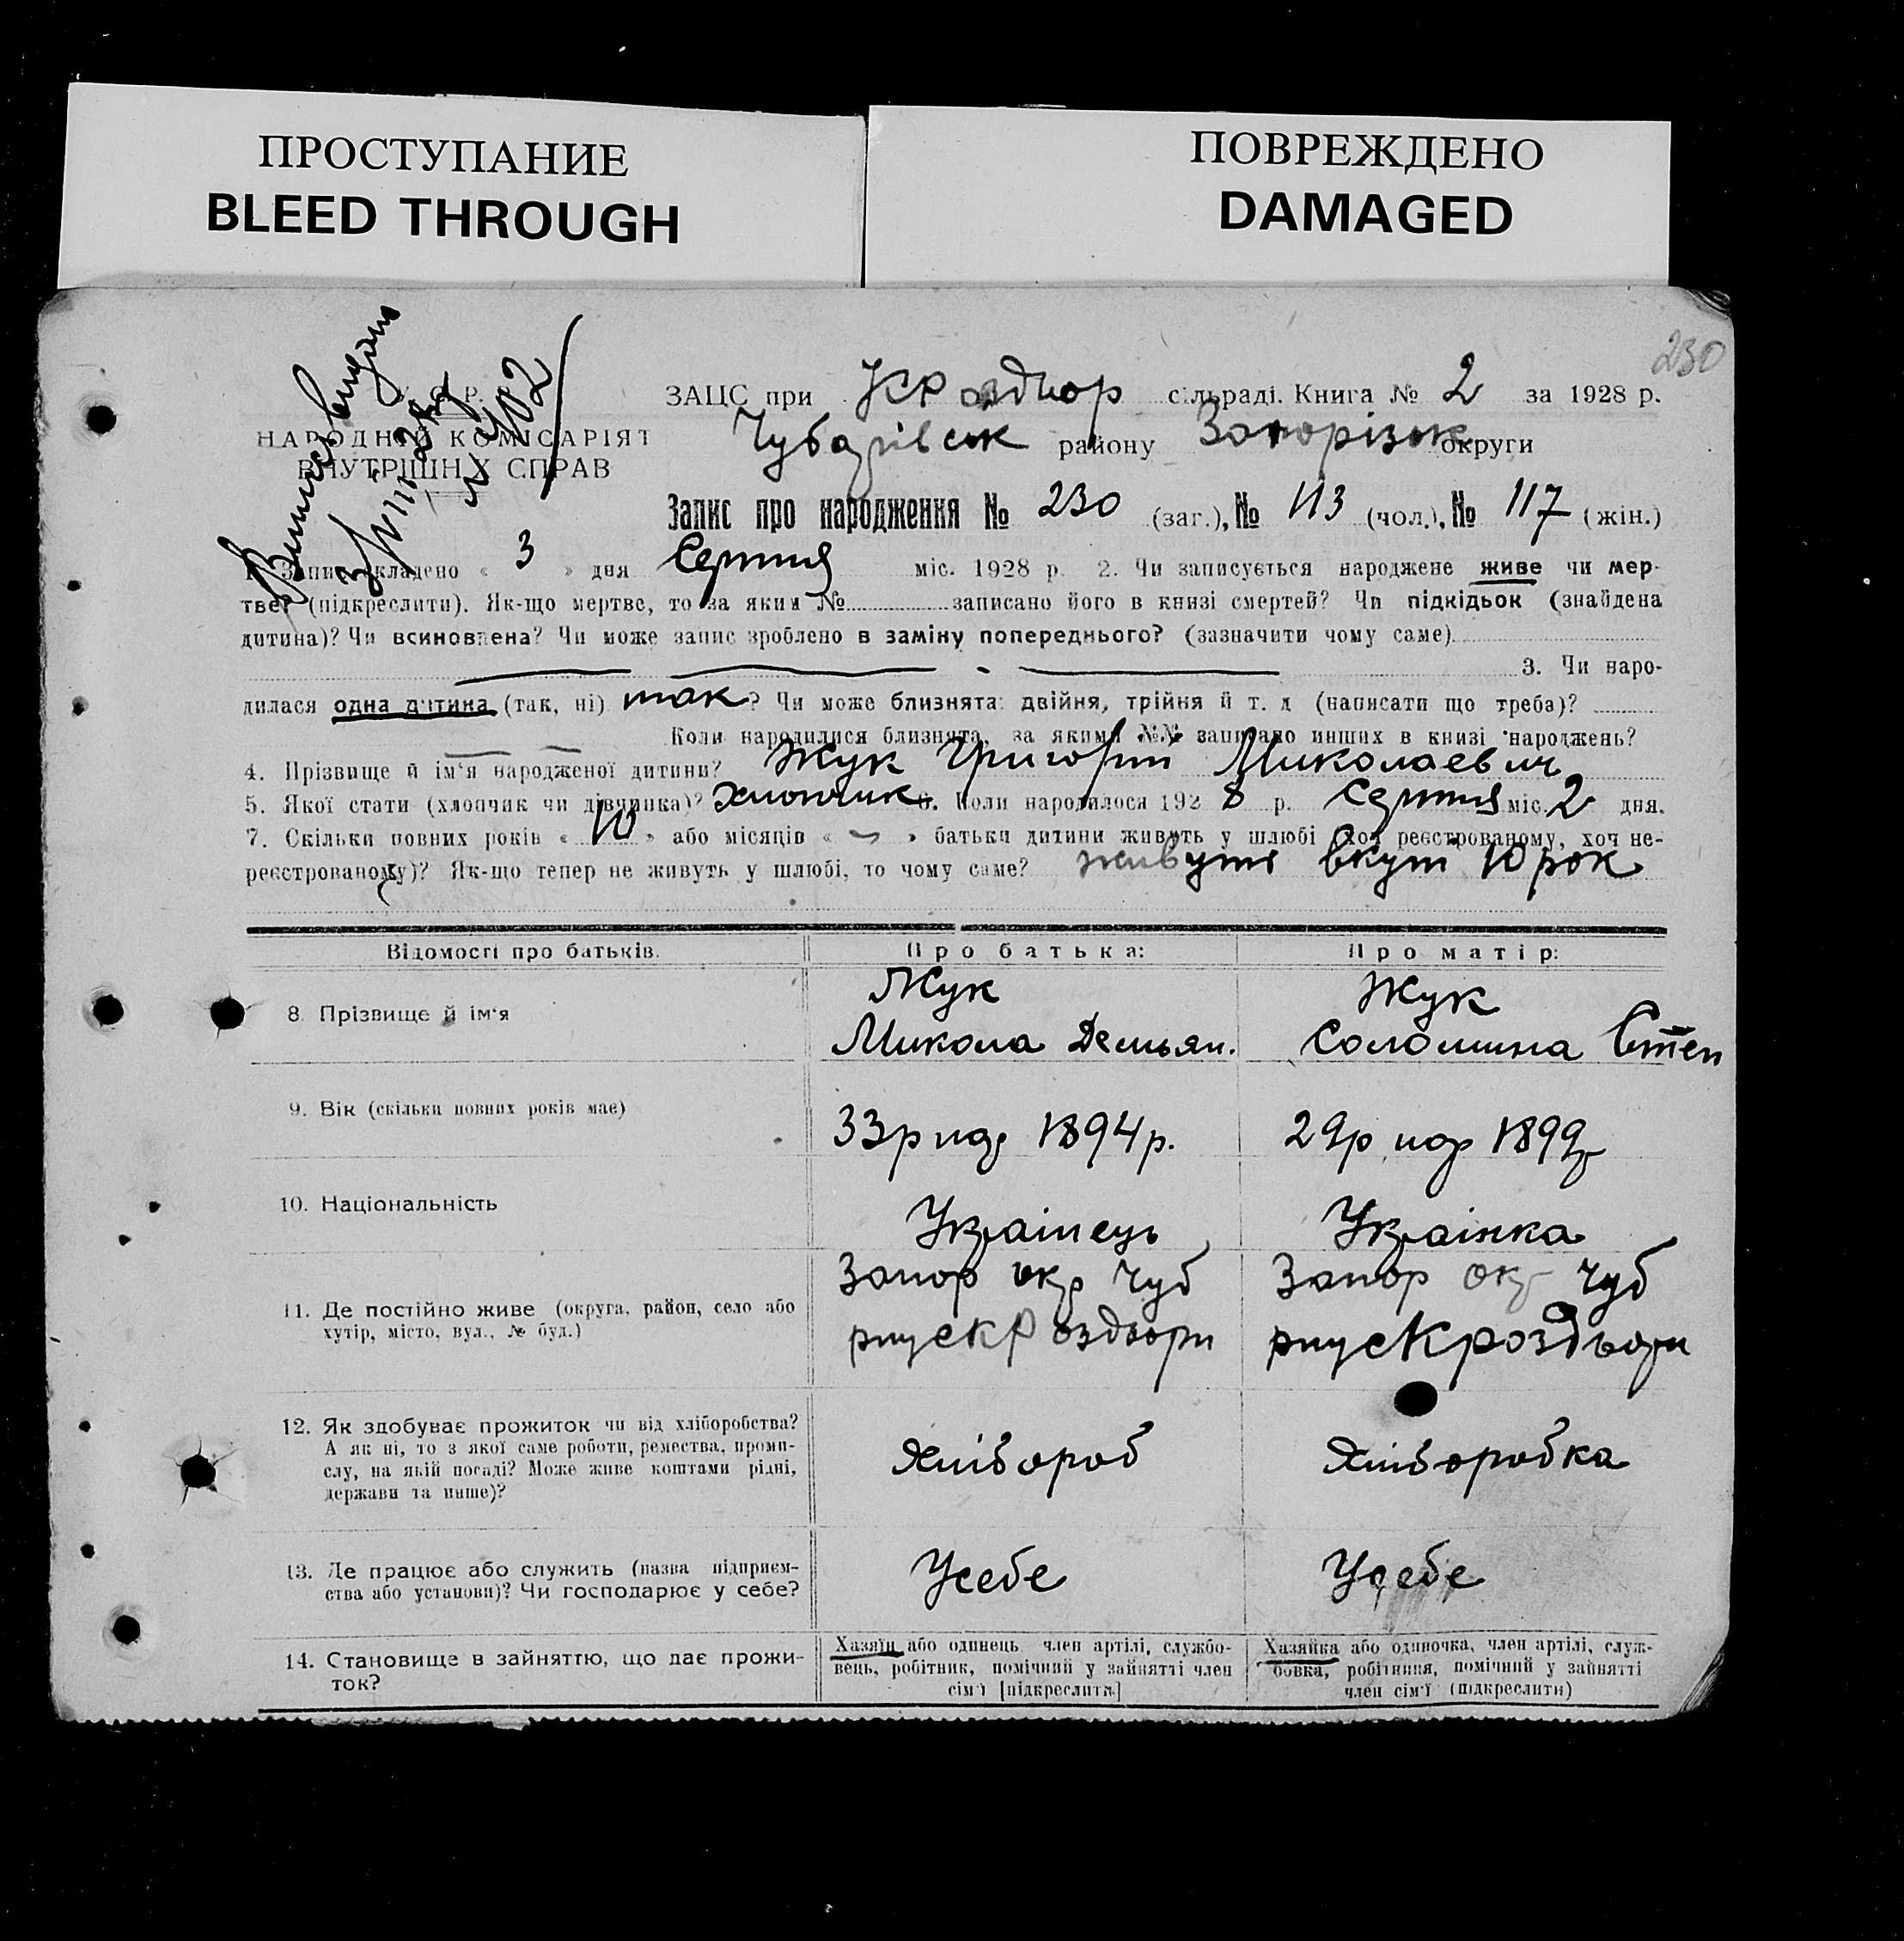 ПРОСТУПАНИЕ
BLEED THROUGH
ПОВРЕЖДЕНО
DAMAGED
230
У.С.Р.Р.
НАРОДНІЙ КОМІСАРІЯТ
ВНУТРІШНІХ СПРАВ
№ 402
ЗАЦС при Кр оздвор сільраді. Книга № 2 за 1928 р.
Чубарівськ району Запорізьк округи
Запис про народження № 230 (заг.), № 113 (чол.), № 117 (жін.)
1. Запис складено « 3 » дня Серпня міс. 1928 р. 2. Чи записується народжене живе чи мер-
тве? (підкреслити). Як-що мертве, то за яким № записано його в книзі смертей? Чи підкідьок (знайдена
дитина)? Чи всиновлена? Чи може запис зроблено в заміну попереднього? (зазначити чому саме)
3. Чи наро-
дилася одна дитина (так, ні) так? Чи може близнята: двійня, трійня й т. д (написати що треба)?
Коли народилися близнята, за якими №№ записано инших в книзі народжень?
4. Прізвище й ім'я народженої дитини? Жук Григорій Миколаевич
5. Якої стати (хлопчик чи дівчинка)? Хлопчик 6. Коли народилося 192 8 р. Серпня міс. 2 дня.
7. Скільки повних років « 10 » або місяців « — » батьки дитини живуть у шлюбі (хоч реєстрованому, хоч не-
реєстрованому)? Як-що тепер не живуть у шлюбі, то чому саме? живуть вкупі 10 рок
Відомості про батьків. Про батька: Про матір:
8. Прізвище й ім'я Жук Микола Демьян. Жук Соломина Степ
9. Вік (скільки повних років має) 33р нар 1894р. 29р нар 1899р
10. Національність Українець Українка
11. Де постійно живе (округа, район, село або Запор окр Чуб Запор окр Чуб
хутір, місто, вул., № буд.) рну с Кр оздвори рну с К роздвори
12. Як здобуває прожиток чи від хліборобства?
А як ні, то з якої саме роботи, ремества, проми- Хлібороб Хліборобка
слу, на якій посаді? Може живе коштами рідні,
держави та инше)?
13. Де працює або служить (назва підприєм- Усебе Усебе
ства або установи)? Чи господарює у себе?
14. Становище в зайняттю, що дає прожи-
ток?
Хазяїн або одинець член артілі, службо-
вець, робітник, помічний у зайнятті член
сім'ї [підкреслити]
Хазяйка або одиночка, член артілі, служ-
бовка, робітниця, помічний у зайнятті
член сім'ї (підкреслити)